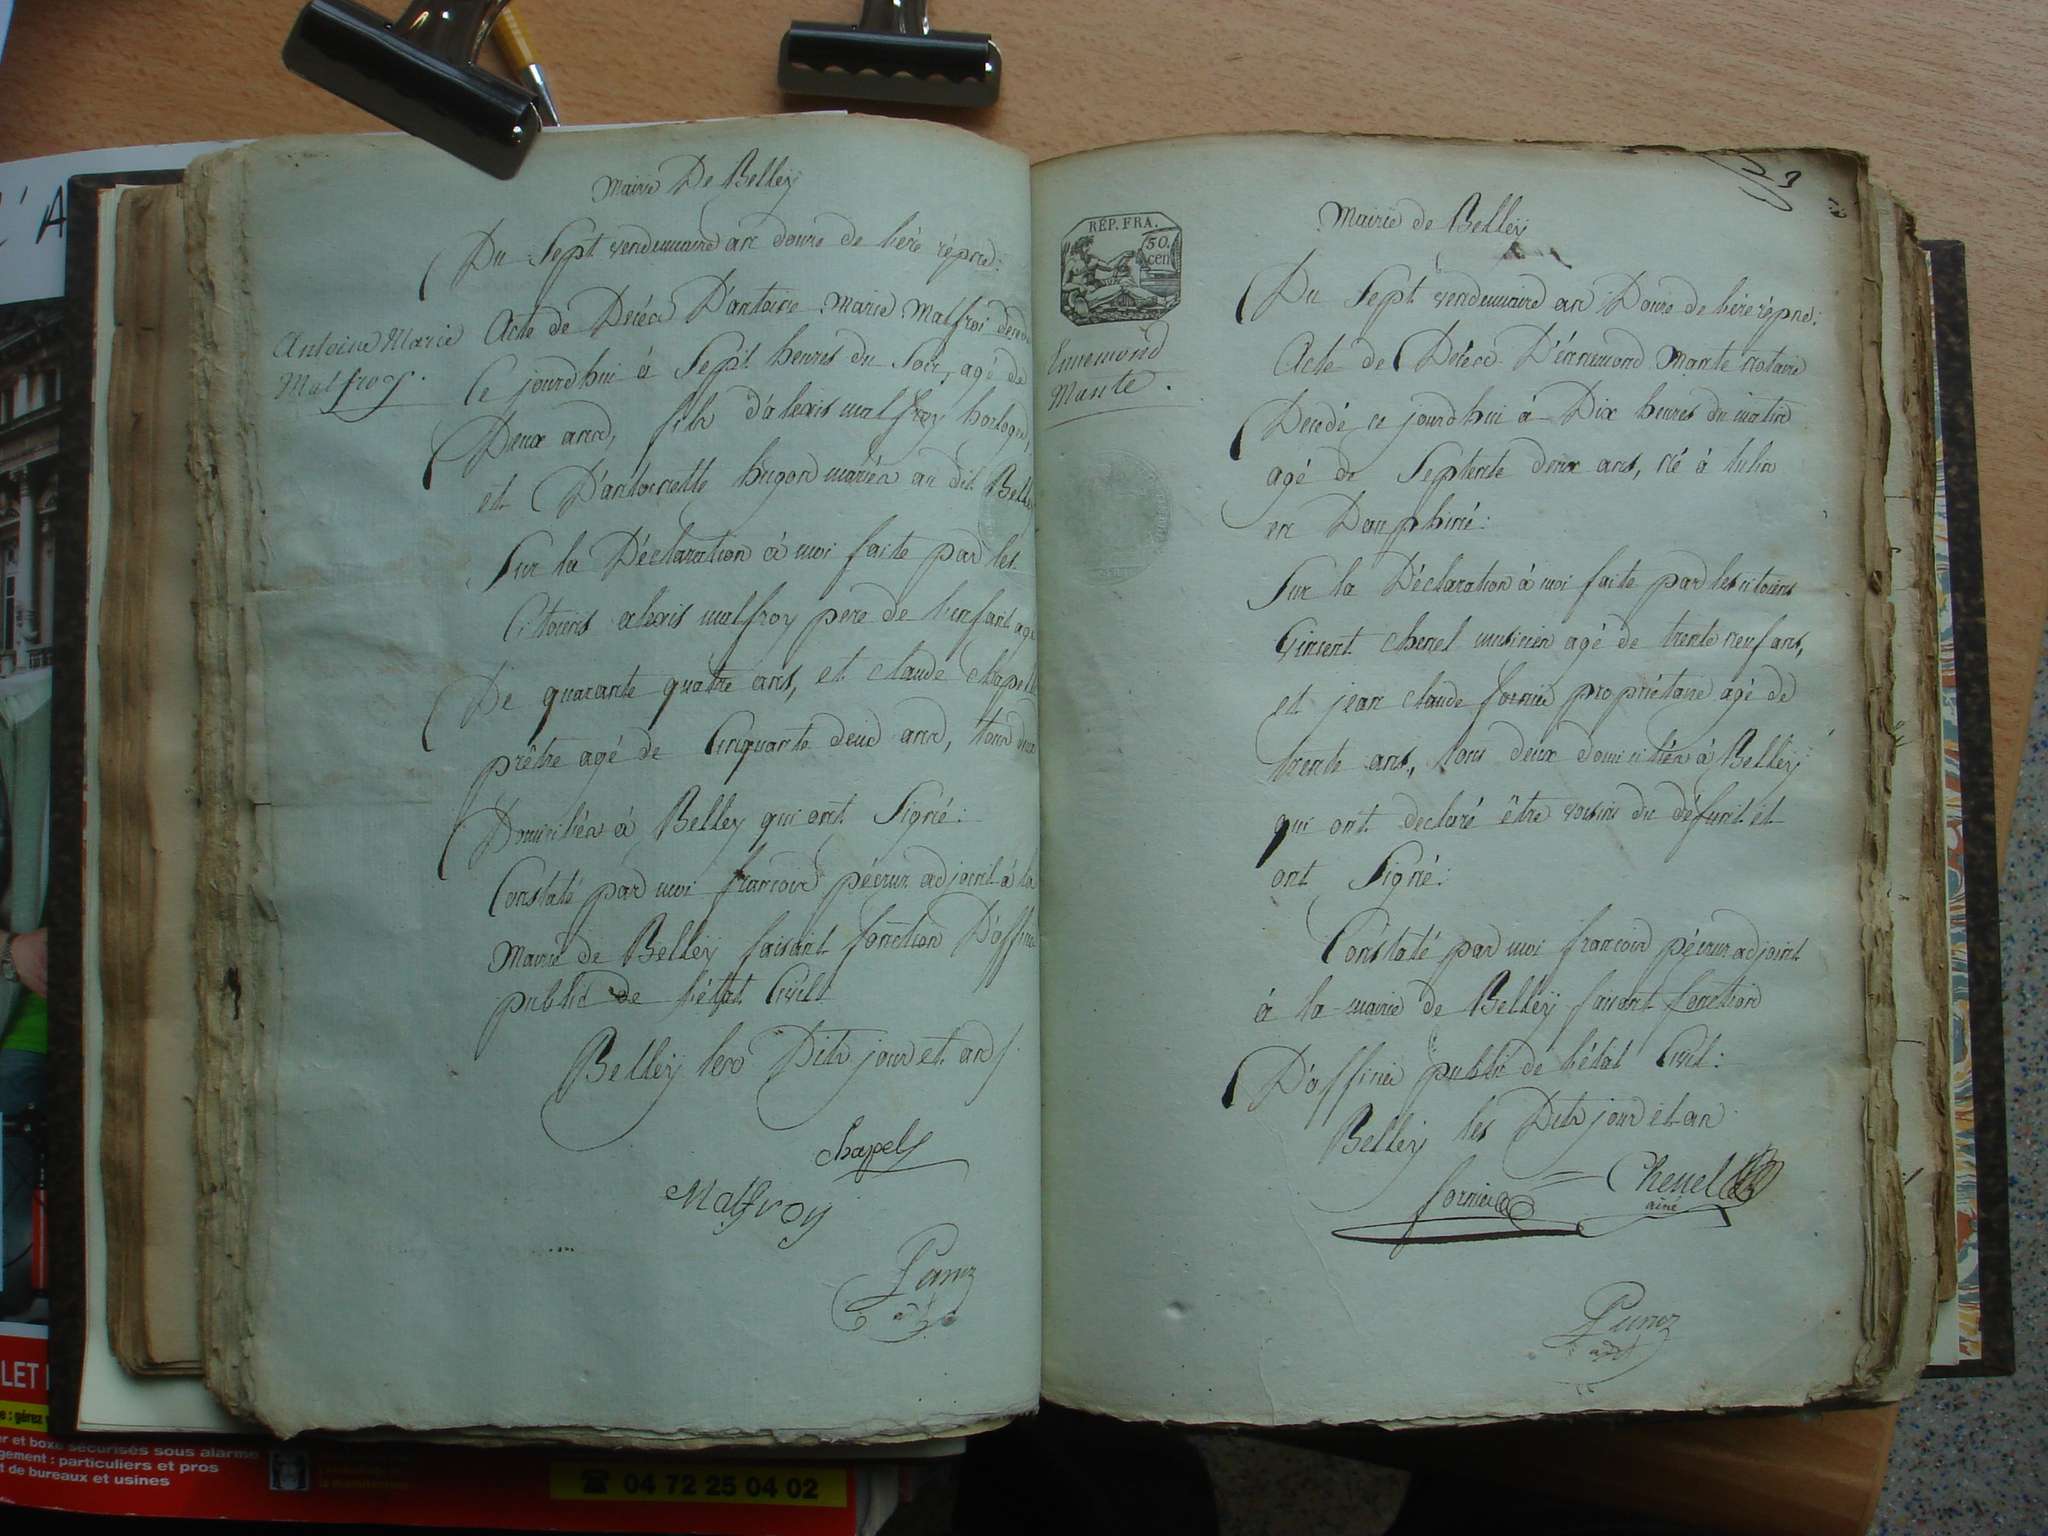 Mairie De Belleÿ
Du Sept vendemiaire an douze de l'ère répne:
Antoine Marie
Malfroy.
Acte de Décèd D'antoine Marie Malfroi deced
Ce jourdhui à Sept heures du Soir, agé de
Deux ans, fils d'alexis malfroy horloger,
et D'antoinette hugon mariés au dit Belley
Sur la Déclaration à moi faite par les
Citoiens alexis malfroy pere de l'enfant agé
De quarante quatre ans, et claude chapell
prêtre agé de Cinquante deux ans, tous deux
Domiciliés à Belley qui ont Signé:
Constaté par moi francois pécour adjoint à la
Mairie de Belleÿ faisant fonction D'officie
public de l'état Civil
Belleÿ les Dits jour et an
Chapel
Malfroy
adj
3
Mairie de Belleÿ
RÉP. FRA.
50.
cen
Ennemond
Mante.
Du Sept vendemiaire an Douze de l'ère répne:
Acte de Décèd D'ennemond Mante Notaire
Decedé ce jourdhui à Dix heures du matin
agé de Septente deux ans, né à tulin
en Dauphiné:
Sur la Déclaration à moi faite par les citoiens
Vincent Chenel musicien agé de trente neuf ans,
et jean claude fornier propriétaire agé de
trente ans, tous deux domiciliés à Belleÿ
qui ont declaré être voisins du défunt et
ont Signé:
Constaté par moi francois pécour adjoint
à la mairie de Belleÿ faisant fonction
D'officier public de l'état Civil:
Belleÿ les Dits jour et an
fornier
Chenel
ainé
adj
L'A
LET
: gérez
er et boxe sécurisés sous alarme
gement : particuliers et pros
t de bureaux et usines
04 72 25 04 02